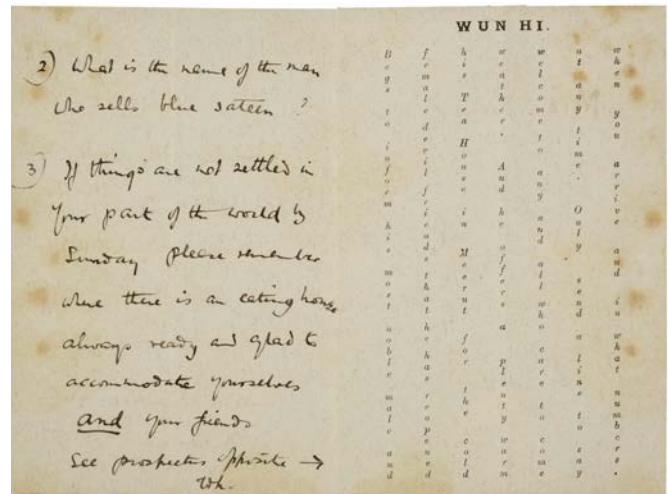 2) What is the name of the man
who sells blue sateen ?
3) If things are not settled in
your part of the world by
Sunday please remember
where there is an eating house
always ready and glad to
accommodate yourselves
and your friends
See prospectus opposite →
WUN HI.
Begs to inform his most noble male and
female devil friends that he has reopened
his Tea House in Meerut for the cold
weather. And he offers a plenty warm
welcome to any and all who care to come
at any time. Only send a line to say
when you arrive and in what numbers.